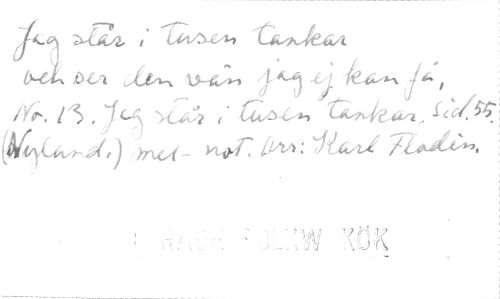 Jag står i tusen tankar
och ser den vän jag ej kan få,
No. 13. Jag står i tusen tankar. Sid. 55.
(Nyland.) mel- not. Arr: Karl Flodin.
FOLKW KÖK